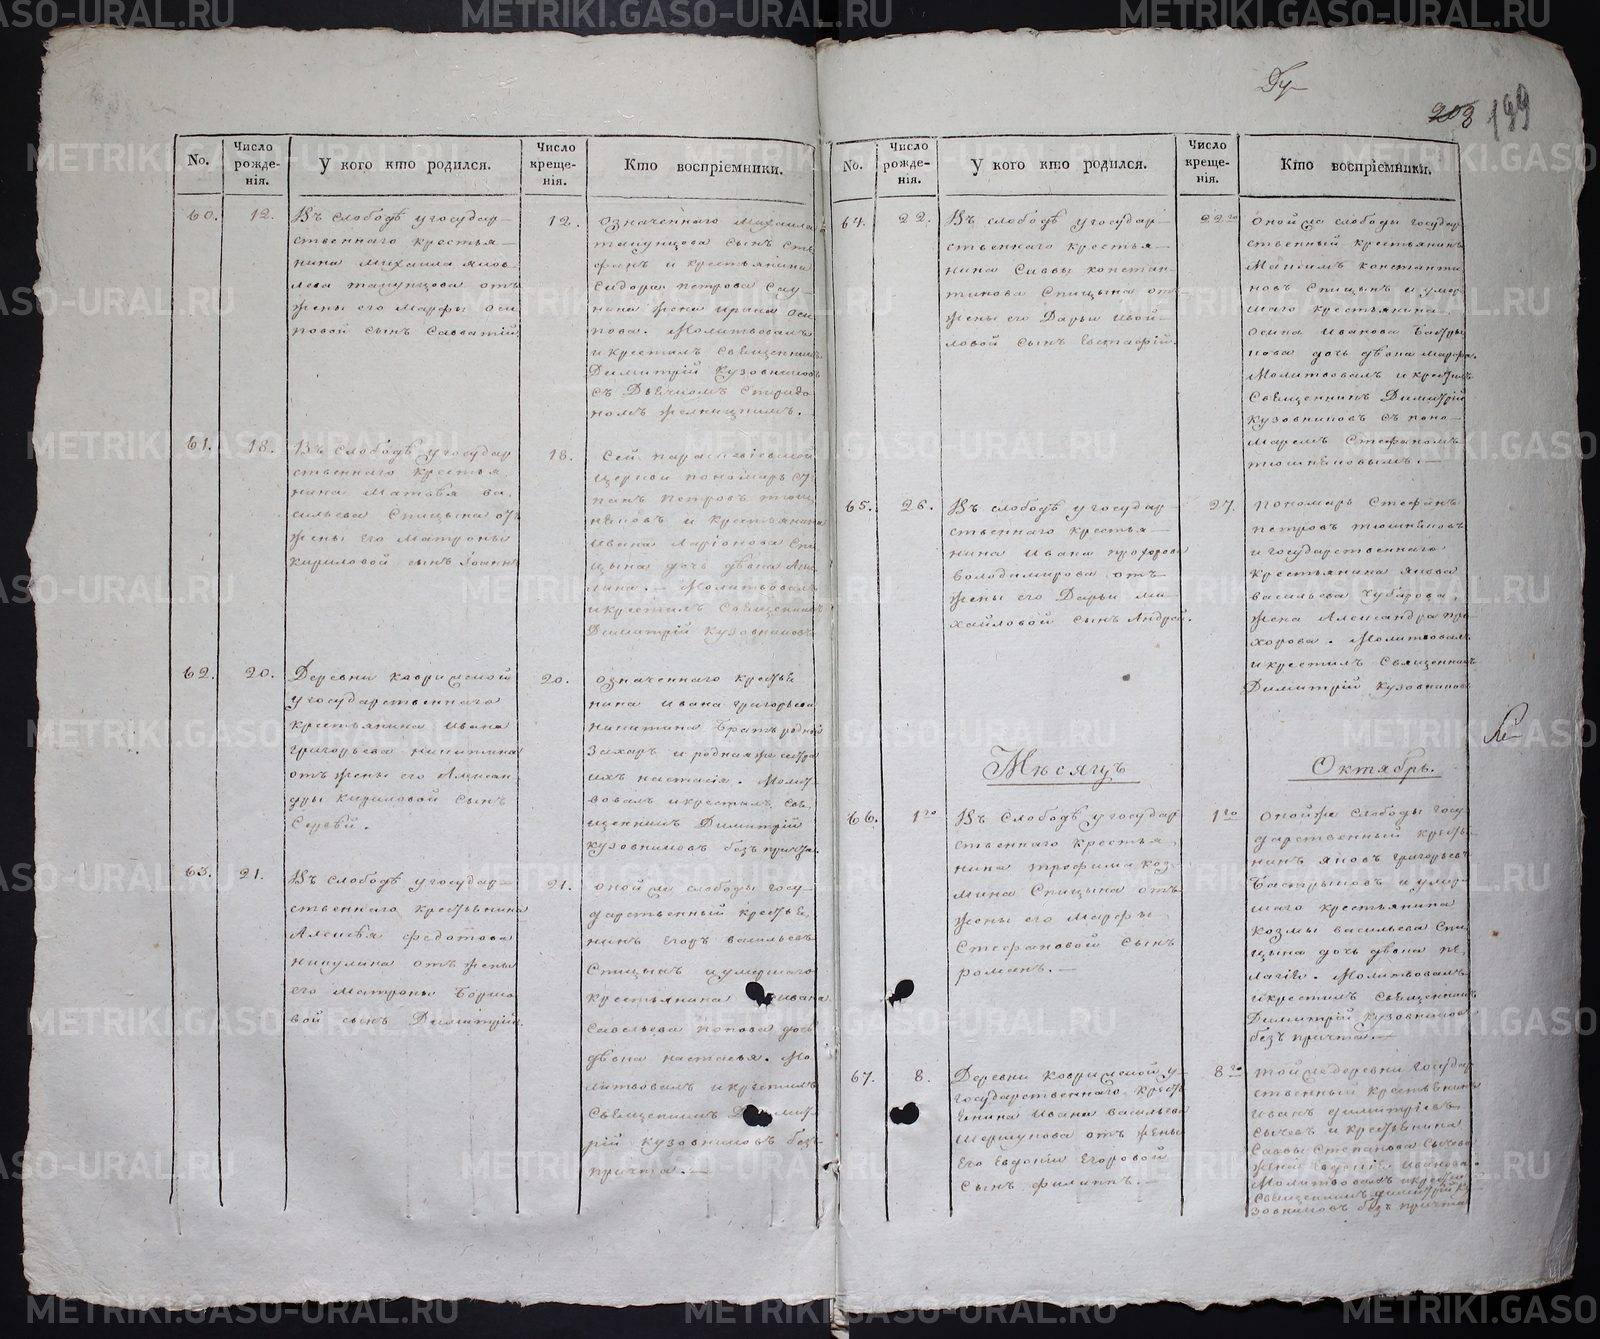 203 199
No.
Число рожде-нія.
У кого кто родился.
Число креще-нія.
Кто воспріемники.
60.
12.
Въ слободѣ у государ-
ственнаго крестья-
нина Михаила Яков-
лева
отъ
жены его Марфы Оси
повой сынъ Савватій
12.
означеннаго Михаила
сынъ Сте
фанъ и крестьянина
Сидора Петрова
жена Ирина Оси
пова. Молитвовалъ
и крестилъ Священникъ
Димитрій Кузовниковъ
съ Дьячкомъ Спиридо
номъ
61.
18.
Въ слободѣ у государ
ственнаго крестья
нина Матвѣя Ва
сильева Спицына отъ
жены его Матроны
Кириловой сынъ Іоаннъ
18.
Сей параскевіевской
церкви пономарь Сте
панъ Петровъ Тюш
няковъ и крестьянина
Ивана Ларіонова Спи
цына дочь двека Аку
лина. — Молитвовалъ
и крестилъ Священникъ
Димитрій Кузовниковъ
62.
20.
Деревни
у государственнаго
крестьянина Ивана
Григорьева Никитина
отъ жены его Алексан
дры Кириловой сынъ
Сергѣй.
20.
означеннаго крестья
нина Ивана Григорьева
Никитина братъ родной
Захаръ и родная же сестра
ихъ Настасія. Молит
вовалъ и крестилъ Свя
щенникъ Димитрій
Кузовниковъ безъ причта.
63.
21.
Въ слободѣ у государ-
ственнаго крестьянина
Алексѣя Федотова
Никулина отъ жены
его Матроны
вой сынъ Димитрій
21.
оной же слободы госу-
дарственный крестья
нинъ Егоръ Васильевъ
Спицынъ и умершаго
крестьянина Ивана
Савельева Попова дочь
девка Настасья. Мо
литвовалъ и крестилъ
Священникъ Димит
рій Кузовниковъ безъ
причта. —
No.
Число рожде-нія.
У кого кто родился.
Число креще-нія.
Кто воспріемники.
64.
22.
Въ слободѣ у государ-
ственнаго крестья-
нина Саввы Констан-
тинова Спицына отъ
жены его Дарьи
ловой сынъ Евстафій.
22го
оной же слободы государ
ственный крестьянинъ
Максимъ Константи
новъ Спицынъ и умер
шаго крестьянина
Осипа Иванова Бастры
кова дочь девка Марфа.
Молитвовалъ и крестилъ
Священникъ Димитрій
Кузовниковъ съ поно-
маремъ Стефаномъ
Тюшняковымъ. —
65.
26.
Въ слободѣ у государ
ственнаго крестья-
нина Ивана Прохорова
Володимирова отъ
жены его Дарьи Ми
хайловой сынъ Андрей.
27.
Пономарь Стефанъ
Петровъ Тюшняковъ
и государственнаго
крестьянина Якова
Васильева Чубарова,
жена Александра Про
хорова. Молитвовалъ
и крестилъ Священникъ
Димитрій Кузовниковъ
Мѣсяцъ Октябрь.
66.
1го
Въ слободѣ у государ
ственнаго крестья
нина Трофима Коз
мина Спицына отъ
жены его Марфы
Стефановой сынъ
Романъ. —
1го
оной же слободы госу
дарственный крестья
нинъ Яковъ Григорьевъ
Бастрыковъ и умер-
шаго крестьянина
Козмы Васильева Спи
цына дочь девка Пе
лагія. Молитвовалъ
и крестилъ Священникъ
Димитрій Кузовниковъ
безъ причта. —
67.
8.
Деревни у
государственнаго кресть
янина Ивана Васильева
Шершунова отъ жены
его Евдокіи Егоровой
сынъ Филиппъ. —
8го
той же деревни государ
ственный крестьянинъ
Иванъ Димитріевъ
Сычевъ и крестьянина
Саввы Степанова Сычева
жена Евдокія Иванова.
Молитвовалъ и крестилъ
Священникъ Димитрій Ку
зовниковъ безъ причта